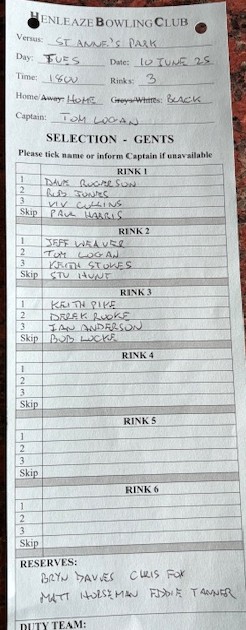 HENLEAZE BOWLING CLUB
Versus: ST ANNE'S PARK
Day: TUES Date: 10 JUNE 25
Time: 1800 Rinks: 3
Home/Away: HOME Greys/Whites: BLACK
Captain: TOM LOGAN
SELECTION - GENTS
Please tick name or inform Captain if unavailable
RINK 1
1 DAVE ROGERSON
2 ROB JONES
3 VIV CULLINS
Skip PAUL HARRIS
RINK 2
1 JEFF WEAVER
2 TOM LOGAN
3 KEITH STOKES
Skip STU HUNT
RINK 3
1 KEITH PIKE
2 DEREK ROOKE
3 IAN ANDERSON
Skip BOB LOCKE
RINK 4
1
2
3
Skip
RINK 5
1
2
3
Skip
RINK 6
1
2
3
Skip
RESERVES:
BRYN DAVIES CHRIS FOX
MATT HORSEMAN EDDIE TANNER
DUTY TEAM: